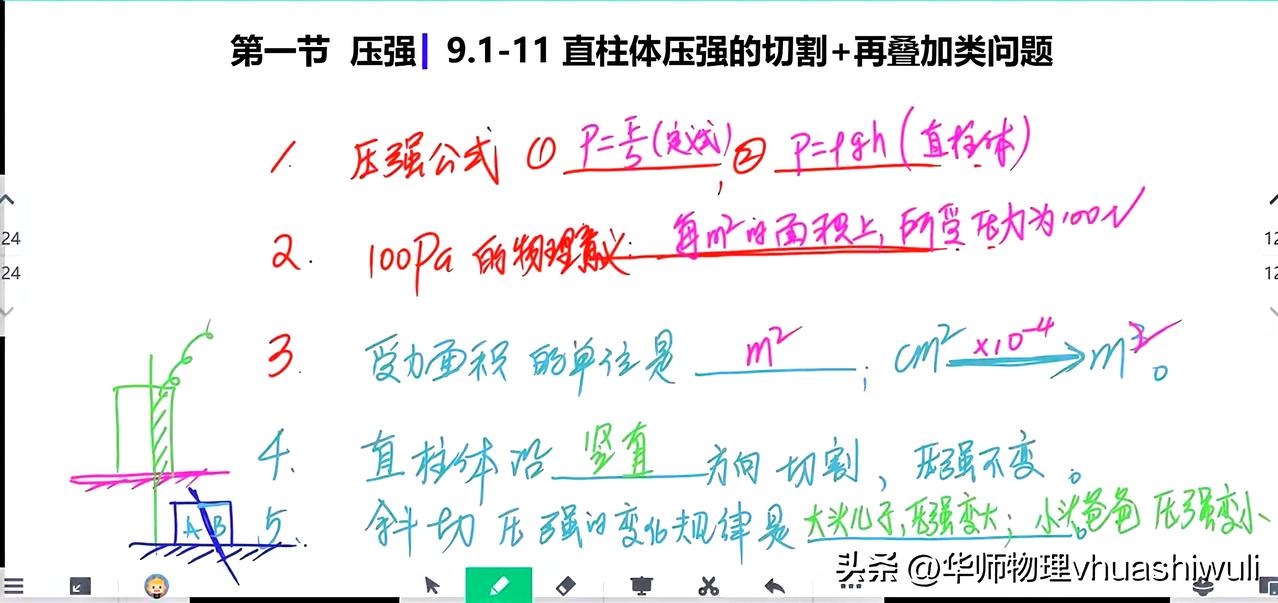 第一节 压强| 9.1-11 直柱体压强的切割+再叠加类问题
1. 压强公式 ① P=F/S(定义式), ② P=ρgh(直柱体)
2. 100Pa 的物理意义: 每m²的面积上,所受压力为100N
24
12
24
12
3 受力面积的单位是 m²; cm² ×10⁻⁴ m²。
4. 直柱体沿 竖直 方向切割,压强不变。
A B
5. 斜切压强的变化规律是 大头儿子,压强变大;小头爸爸 压强变小
头条 @华师物理vhuashiwuli